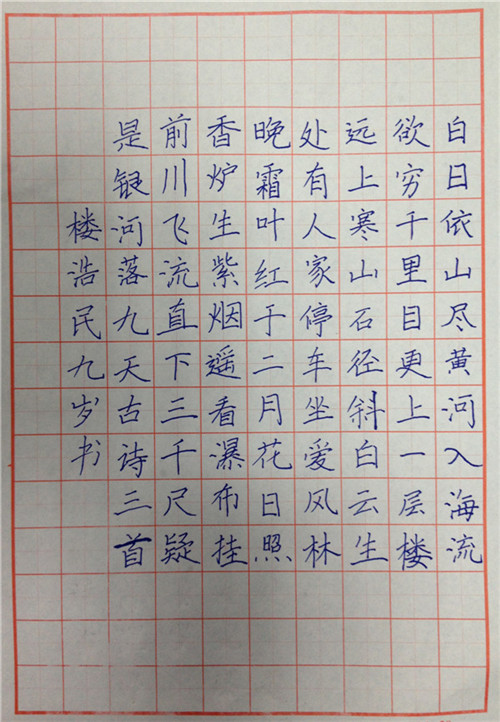 白日依山尽黄河入海流
欲穷千里目更上一层楼
远上寒山石径斜白云生
处有人家停车坐爱风林
晚霜叶红于二月花日照
香炉生紫烟遥看瀑布挂
前川飞流直下三千尺疑
是银河落九天古诗三首
楼浩民九岁书